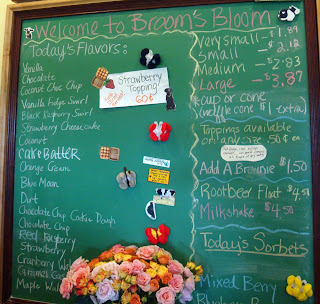 Welcome to Broom's Bloom
Today's Flavors:
Vanilla
Chocolate
Coconut Choc Chip
Vanilla Fudge Swirl
Black Raspberry Swirl
Strawberry Cheesecake
Coconut
Cake Batter
Orange Cream
Blue Moon
Dirt
Chocolate Chip Cookie Dough
Chocolate Chip
Red Raspberry
Strawberry
Cranberry
Caramel
Maple
Strawberry
Topping
60¢
Very small - $1.89
Small - $2.12
Medium - $2.83
Large - $3.87
*cup or cone
(waffle cone $1 extra)
Toppings available
on any size .50¢ ea
Add A Brownie $1.50
Rootbeer Float $4.54
Milkshake $4.50
Today's Sorbets
Mixed Berry